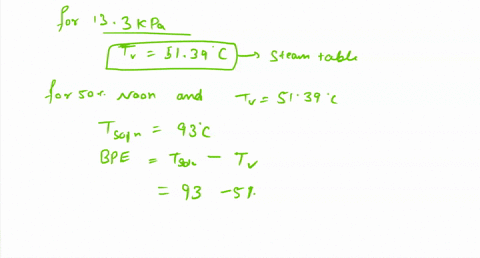 for 13.3 KPa
Tv = 51.39°C → Steam table
for 50% NaOH and Tv = 51.39°C
Tsoln = 93°C
BPE = Tsoln - Tv
= 93 - 51.